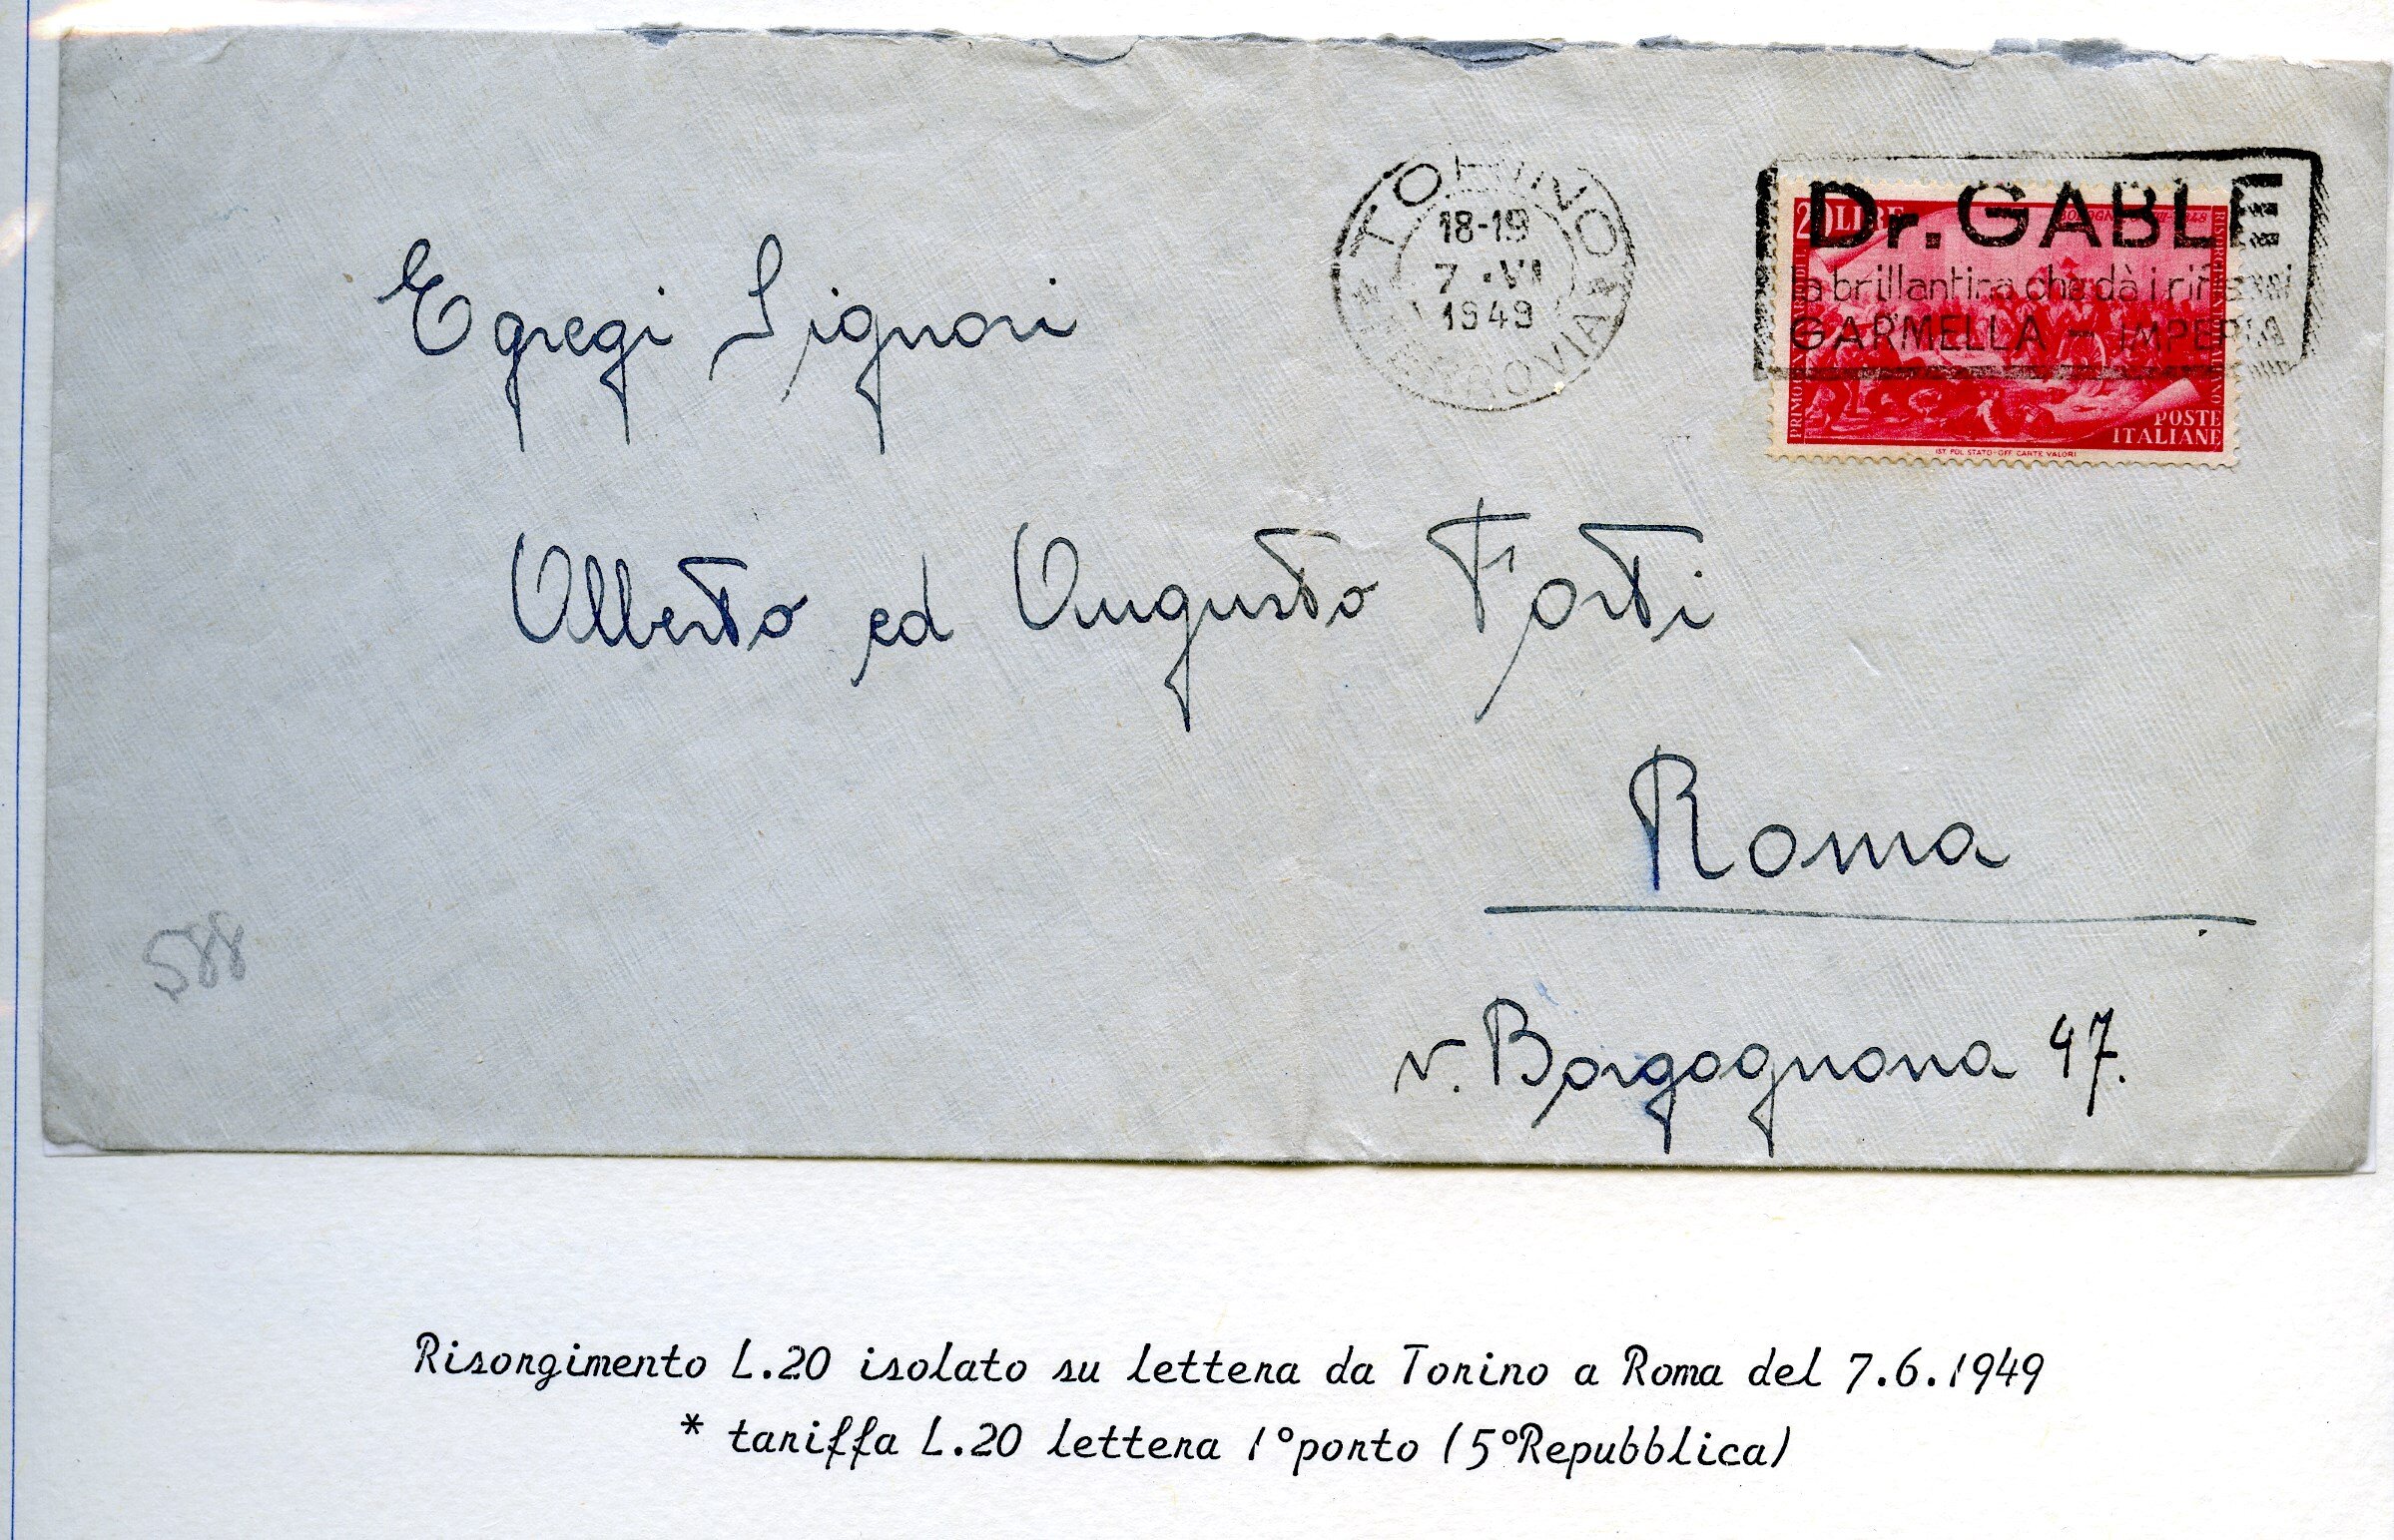 TORINO
18-19
7 · VI
1949
FERROVIA
Dr. GABLE
la brillantina che dà i riflessi
GARMELLA - IMPERIA
20 LIRE
BOLOGNA
PRIMO
RISORGIMENTO ITALIANO
POSTE
ITALIANE
IST. POL. STATO-OFF. CARTE VALORI
Egregi Signori
Alberto ed Augusto Forti
Roma
v. Borgognona 47.
588
Risorgimento L.20 isolato su lettera da Torino a Roma del 7.6.1949
* tariffa L.20 lettera 1°porto (5°Repubblica)